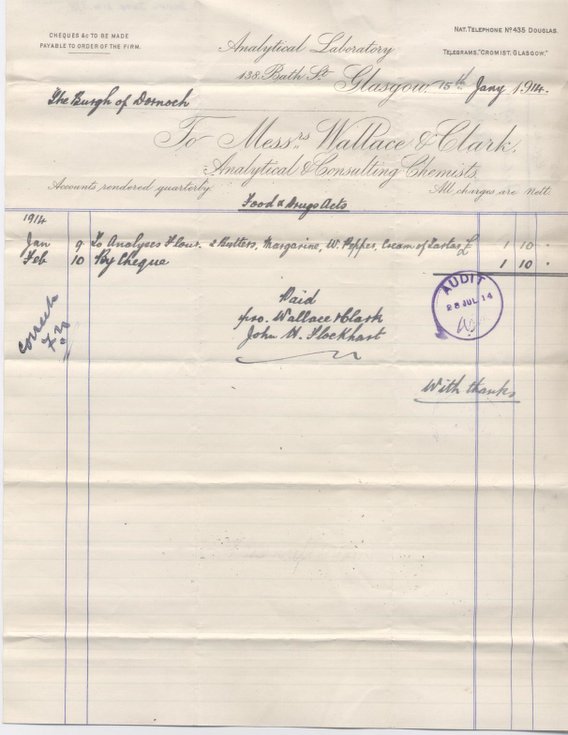 CHEQUES &c TO BE MADE
PAYABLE TO ORDER OF THE FIRM.
NAT. TELEPHONE Nº 435 DOUGLAS.
TELEGRAMS, "CROMIST, GLASGOW."
Analytical Laboratory
138. Bath St.
Glasgow, 15th Jany 1914.
The Burgh of Dornoch
To Messrs Wallace & Clark.
Analytical & Consulting Chemists.
Accounts rendered quarterly.
All charges are Nett.
Food & Drugs Acts
1914
Jan 9 To Analyses Flour, 2 Butters, Margarine, W. Pepper, Cream of Tartar £ 1 10 "
Feb 10 By Cheque 1 10 "
AUDIT
28 JUL 14
Paid
pro. Wallace & Clark
John W. Flockhart
With thanks